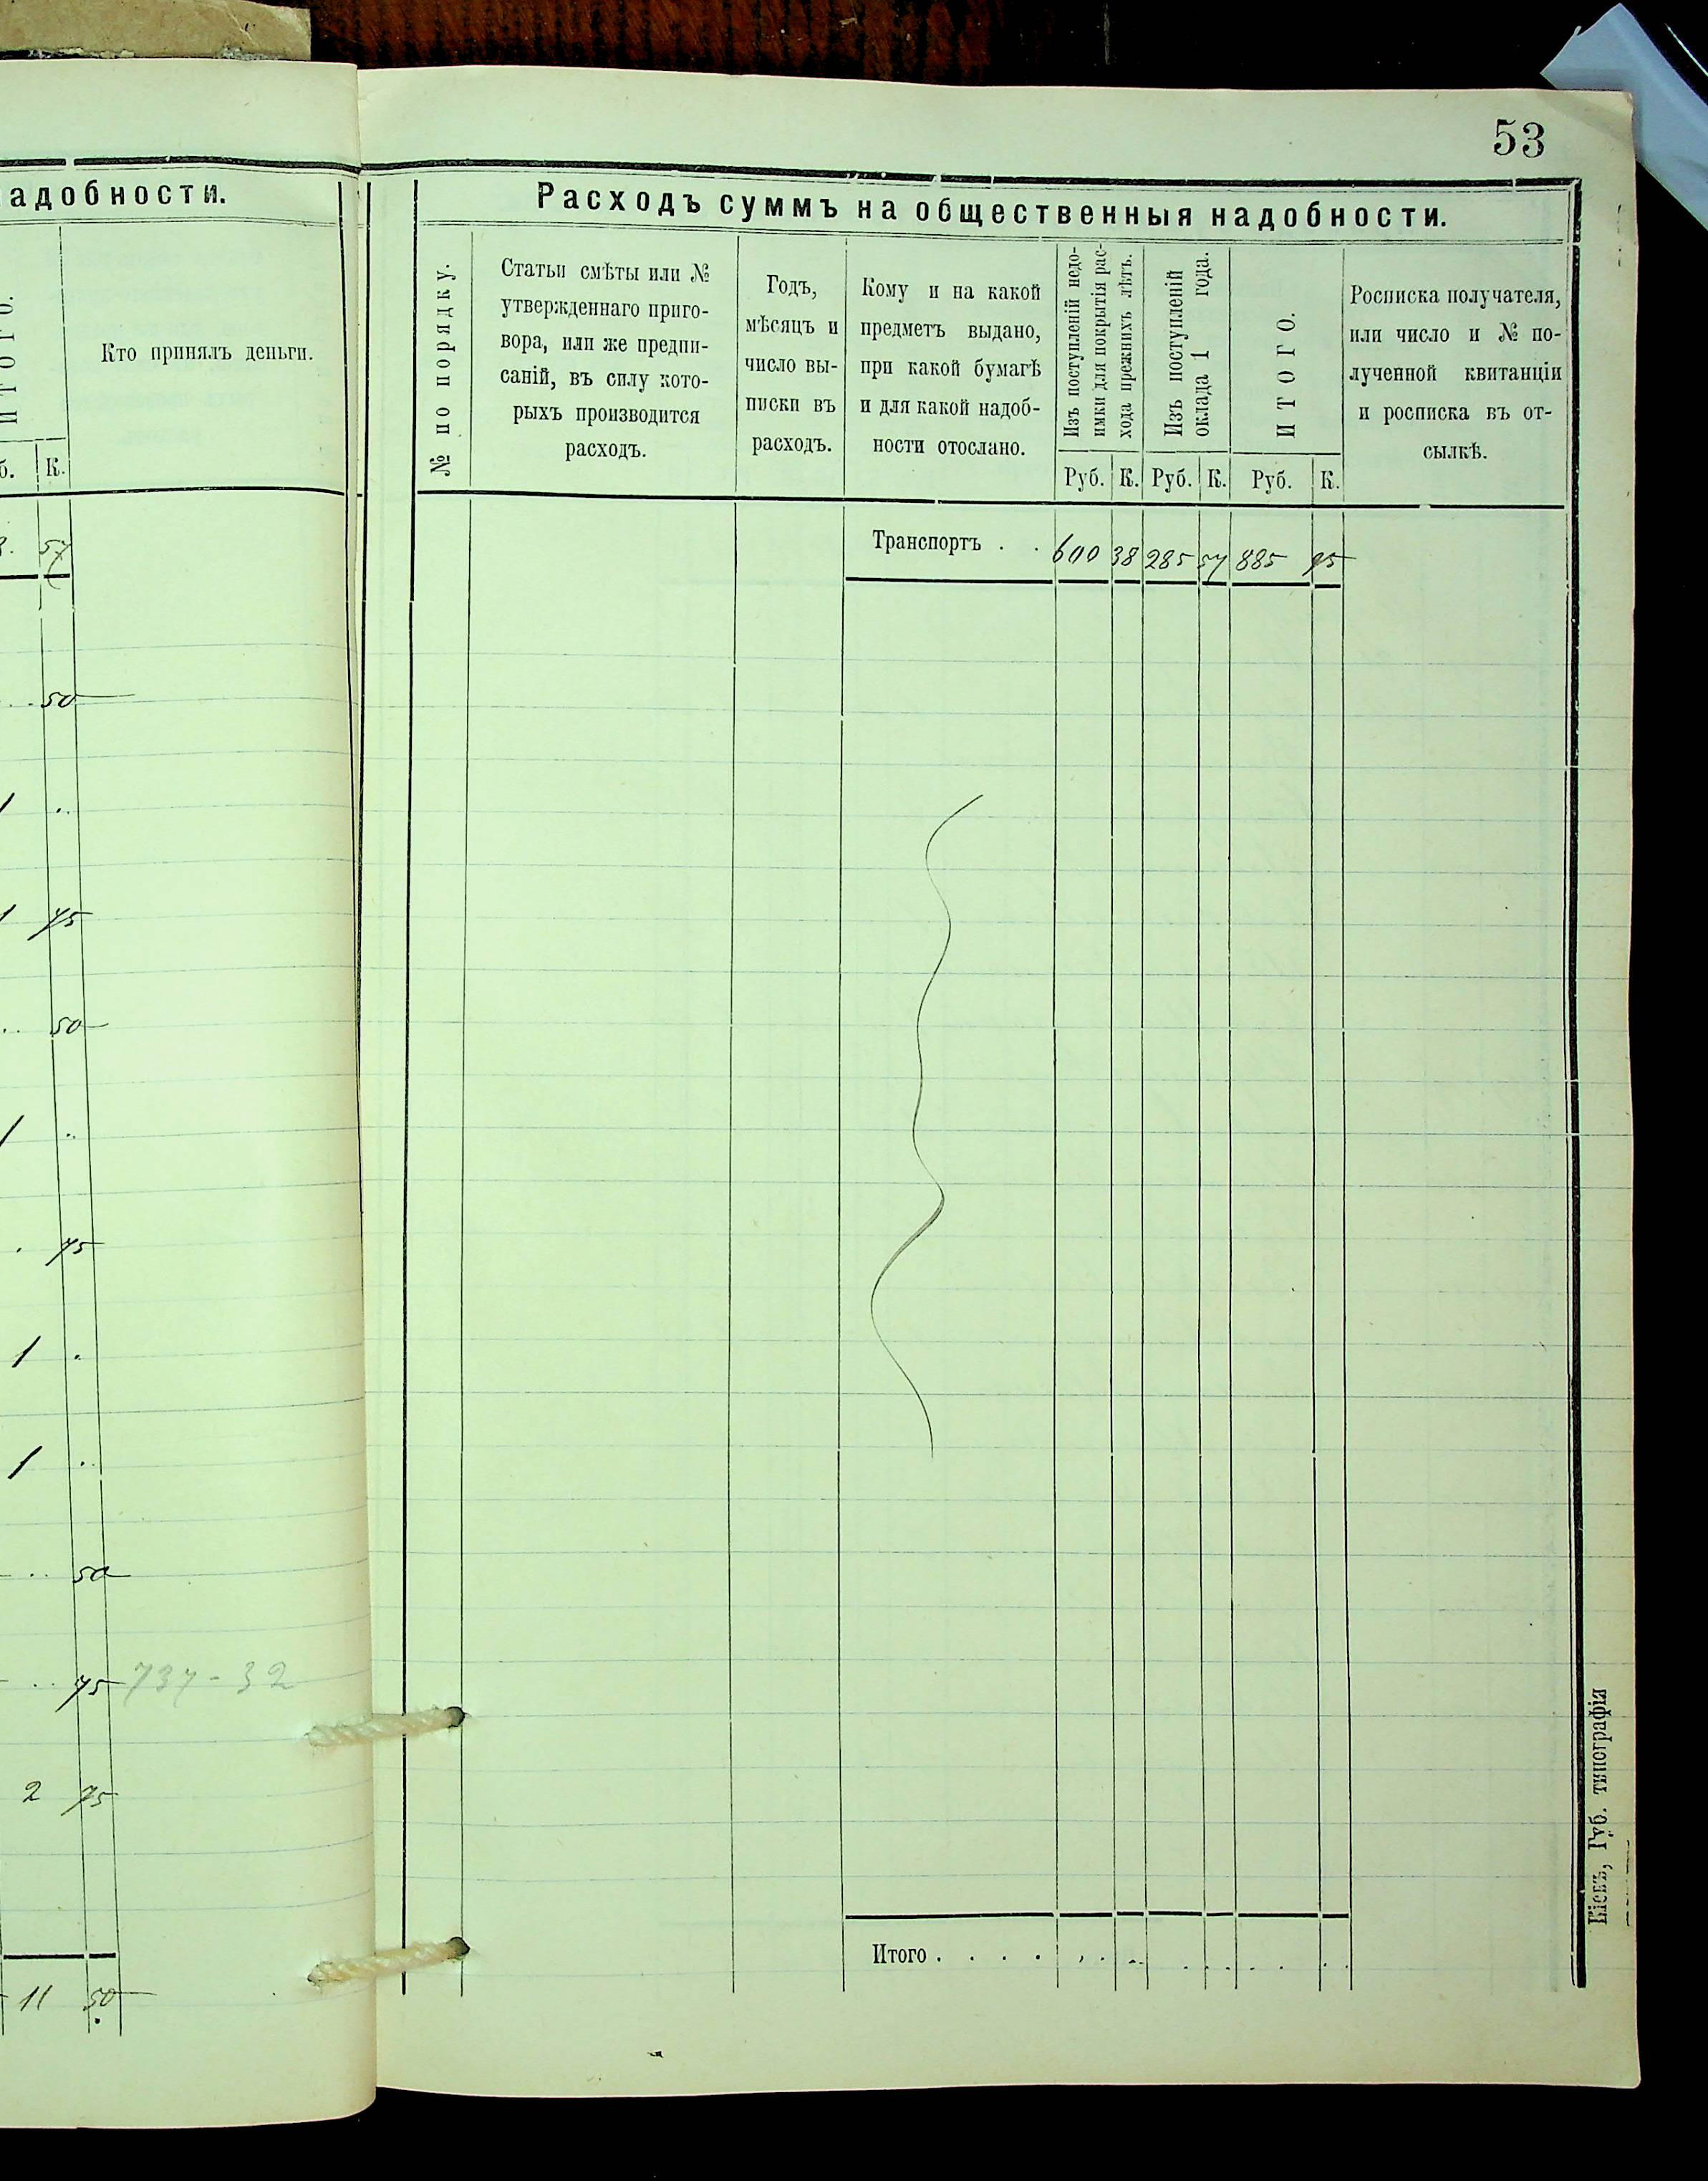 53
адобности.
ИТОГО.
Кто принялъ деньги.
б. К.
57
50
1
1 75
50
1
75
1
1
50
75 737-32
2 75
11 50
Расходъ суммъ на общественныя надобности.
№ по порядку.
Статьи смѣты или №
утвержденнаго приго-
вора, или же предпи-
саній, въ силу кото-
рыхъ производится
расходъ.
Годъ,
мѣсяцъ и
число вы-
писки въ
расходъ.
Кому и на какой
предметъ выдано,
при какой бумагѣ
и для какой надоб-
ности отослано.
Изъ поступленій недо-
имки для покрытія рас-
хода прежнихъ лѣтъ.
Изъ поступленій
оклада 1 года.
ИТОГО.
Росписка получателя,
или число и № по-
лученной квитанціи
и росписка въ от-
сылкѣ.
Руб. К. Руб. К. Руб. К.
Транспортъ . . 600 38 285 57 885 95
Итого . . . .
Кіевъ, Губ. типографія